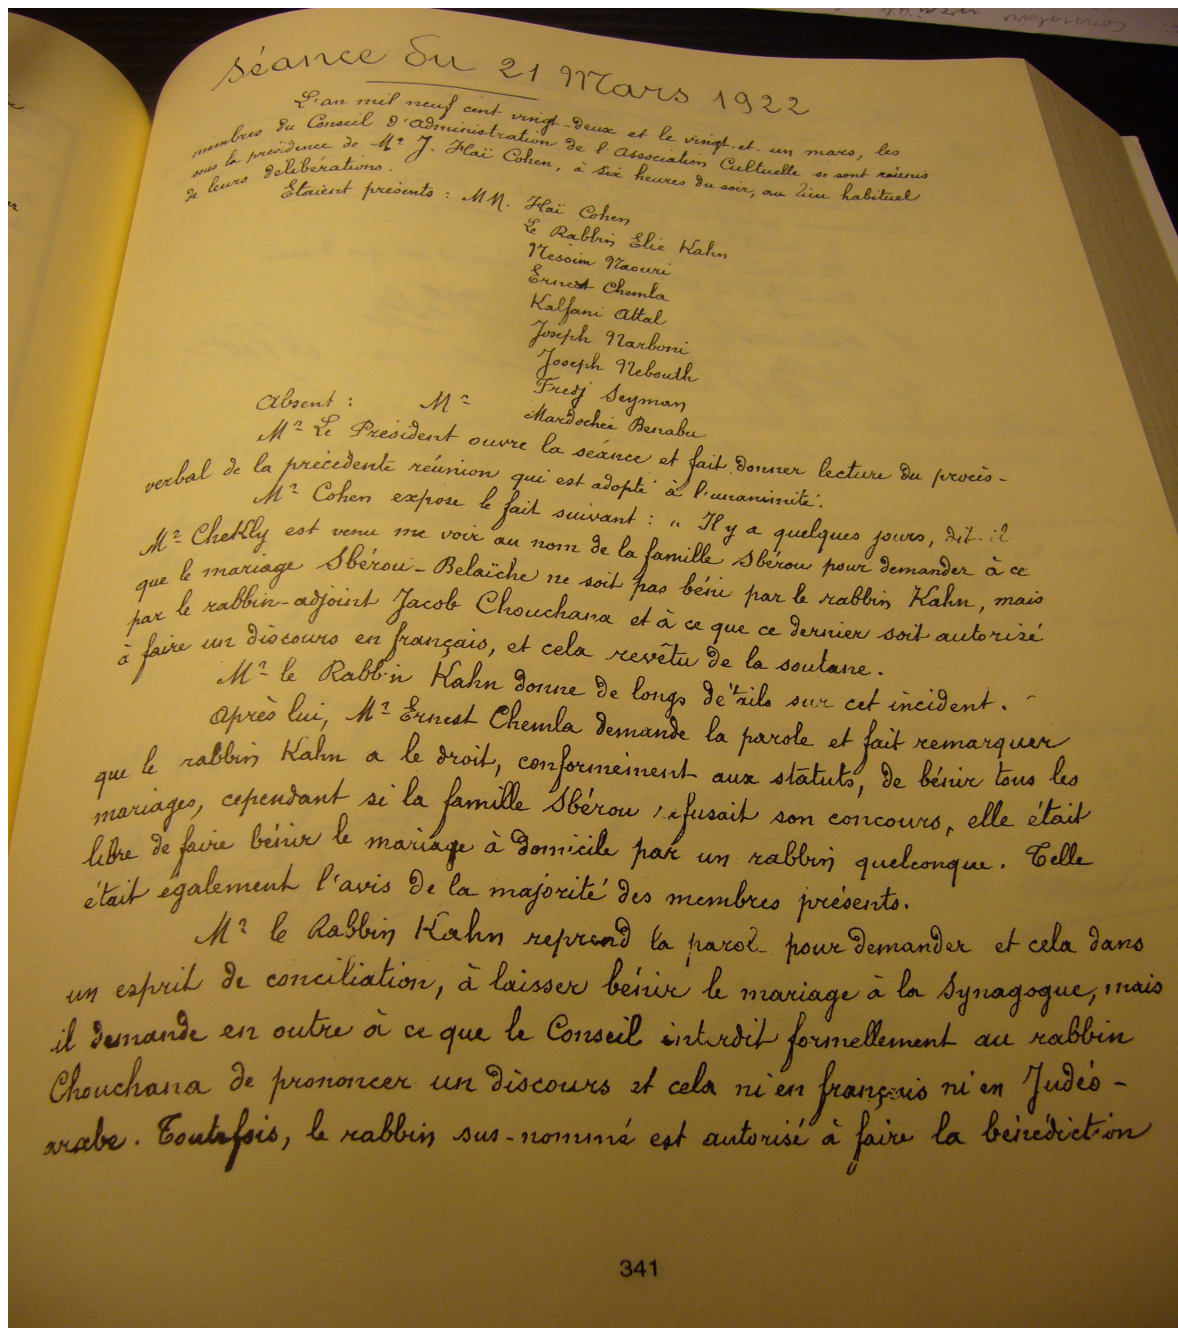 séance du 21 Mars 1922
L'an mil neuf cent vingt-deux et le vingt-et-un mars, les
membres du Conseil d'administration de l'association Cultuelle se sont réunis
sous la présidence de Mr J. Haï Cohen, à six heures du soir, au lieu habituel
de leurs délibérations.
Etaient présents : MM. Haï Cohen
Le Rabbin Elie Kahn
Nessim Naouri
Ernest Chemla
Kalfani Attal
Joseph Narboni
Joseph Nebouth
Fredj Seyman
Absent : Mr Mardochée Benabu
Mr Le Président ouvre la séance et fait donner lecture du procès-
verbal de la précédente réunion qui est adopté à l'unanimité.
Mr Cohen expose le fait suivant : " Il y a quelques jours, dit-il
Mr Chekly est venu me voir au nom de la famille Sbérou pour demander à ce
que le mariage Sbérou-Belaïche ne soit pas béni par le rabbin Kahn, mais
par le rabbin-adjoint Jacob Chouchana et à ce que ce dernier soit autorisé
à faire un discours en français, et cela revêtu de la soutane.
Mr le Rabbin Kahn donne de longs détails sur cet incident.
Après lui, Mr Ernest Chemla demande la parole et fait remarquer
que le rabbin Kahn a le droit, conformément aux statuts, de bénir tous les
mariages, cependant si la famille Sbérou refusait son concours, elle était
libre de faire bénir le mariage à domicile par un rabbin quelconque. Telle
était également l'avis de la majorité des membres présents.
Mr le Rabbin Kahn reprend la parole pour demander et cela dans
un esprit de conciliation, à laisser bénir le mariage à la Synagogue, mais
il demande en outre à ce que le Conseil interdit formellement au rabbin
Chouchana de prononcer un discours et cela ni en français ni en Judéo-
arabe. Toutefois, le rabbin sus-nommé est autorisé à faire la bénédiction
341